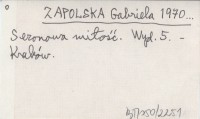 ZAPOLSKA Gabriela 1970...
Sezonowa miłość. Wyd. 5. -
Kraków.